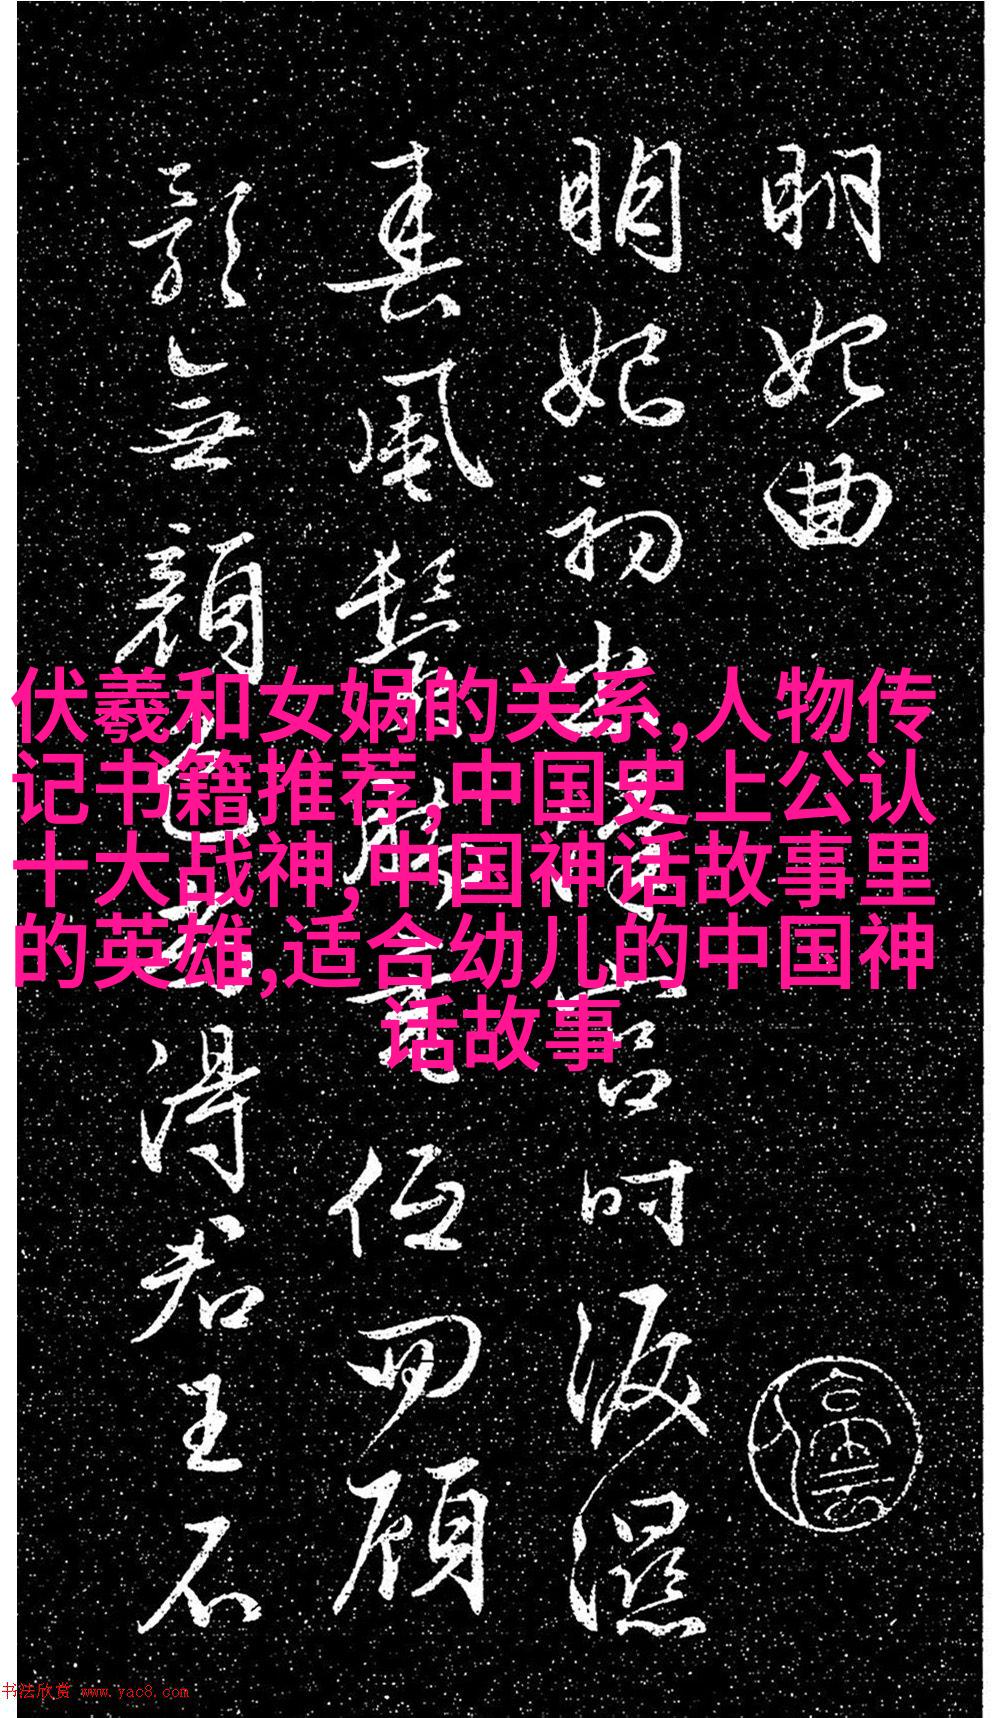 明妃曲
明妃初出漢宮時淚濕
春風鬢腳垂低回顧
影無顏色尚得君王不
伏羲和女娲的关系,人物传
记书籍推荐,中国史上公认
十大战神,中国神话故事里
的英雄,适合幼儿的中国神
话故事
书法欣赏 www.yac8.com